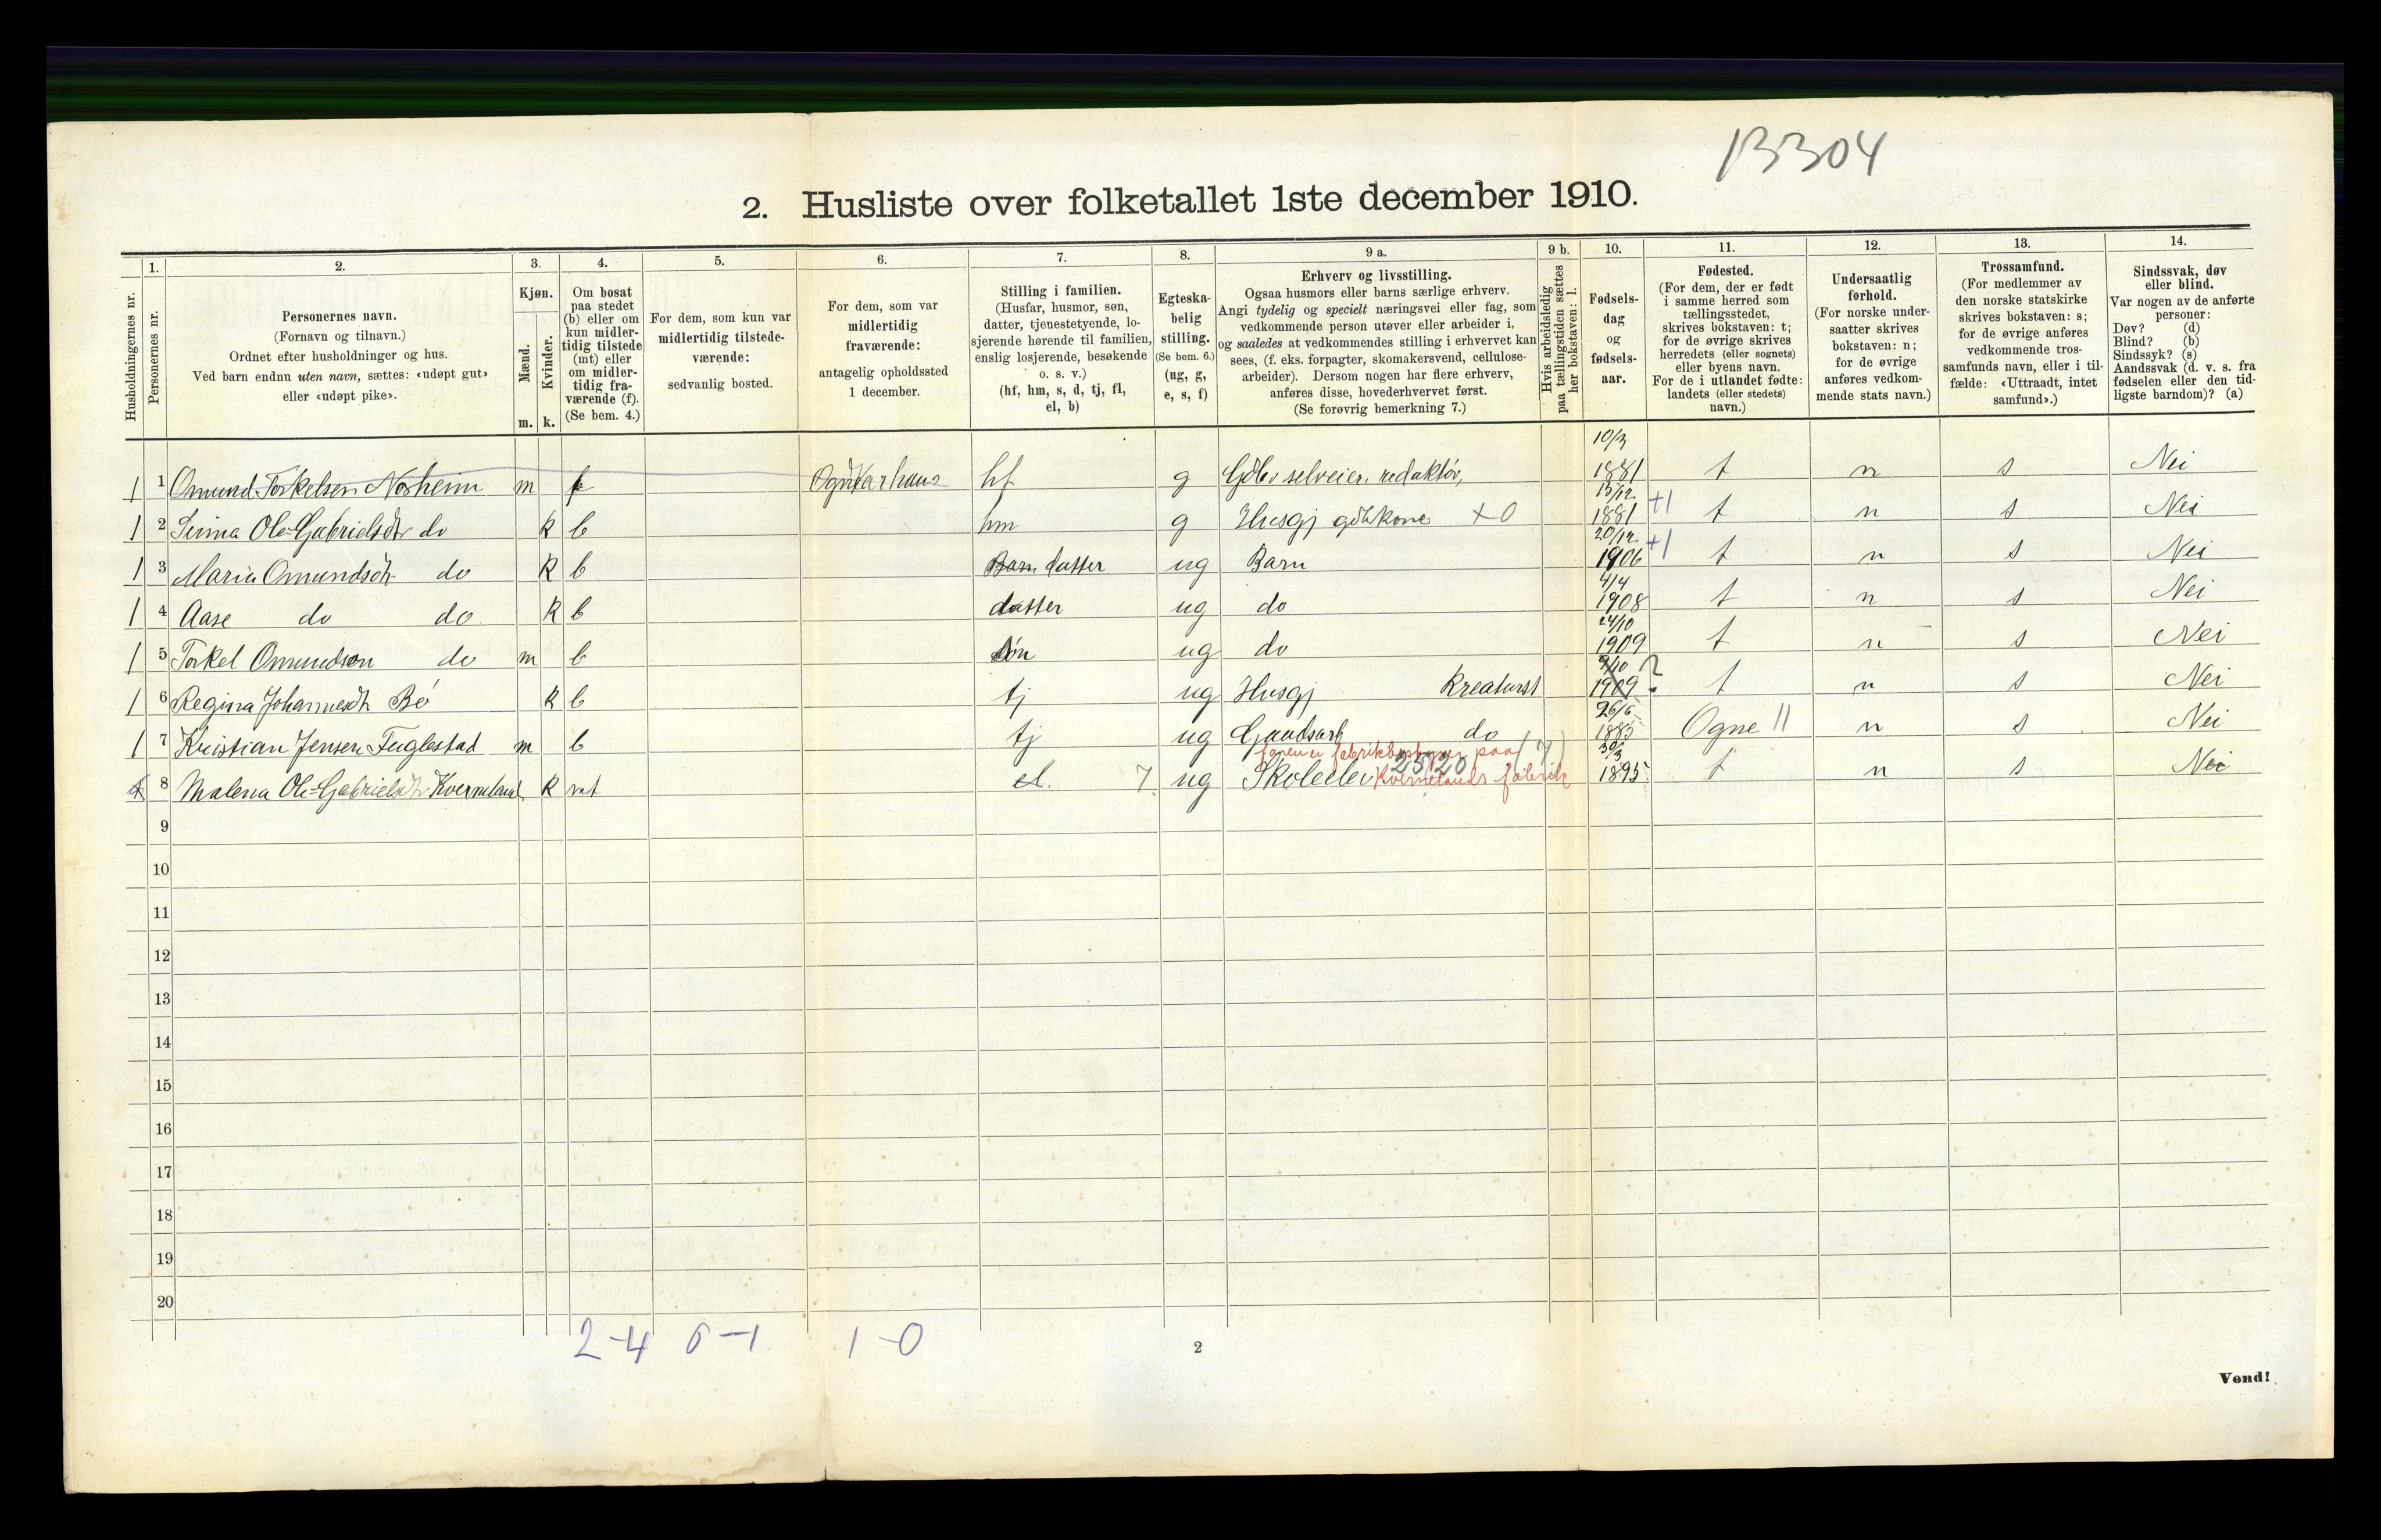 13304
2. Husliste over folketallet 1ste december 1910.
Husholdningernes nr.
1.
Personernes nr.
2.
Personernes navn.
(Fornavn og tilnavn.)
Ordnet efter husholdninger og hus.
Ved barn endnu uten navn, sættes: «udøpt gut»
eller «udøpt pike».
3.
Kjøn.
Mænd. Kvinder.
m. k.
4.
Om bosat
paa stedet
(b) eller om
kun midler-
tidig tilstede
(mt) eller
om midler-
tidig fra-
værende (f).
(Se bem. 4.)
5.
For dem, som kun var
midlertidig tilstede-
værende:
sedvanlig bosted.
6.
For dem, som var
midlertidig
fraværende:
antagelig opholdssted
1 december.
7.
Stilling i familien.
(Husfar, husmor, søn,
datter, tjenestetyende, lo-
sjerende hørende til familien,
enslig losjerende, besøkende
o. s. v.)
(hf, hm, s, d, tj, fl,
el, b)
8.
Egteska-
belig
stilling.
(Se bem. 6.)
(ug, g,
e, s, f)
9 a.
Erhverv og livsstilling.
Ogsaa husmors eller barns særlige erhverv.
Angi tydelig og specielt næringsvei eller fag, som
vedkommende person utøver eller arbeider i,
og saaledes at vedkommendes stilling i erhvervet kan
sees, (f. eks. forpagter, skomakersvend, cellulose-
arbeider). Dersom nogen har flere erhverv,
anføres disse, hovederhvervet først.
(Se forøvrig bemerkning 7.)
9 b.
Hvis arbeidsledig
paa tællingstiden sættes
her bokstaven: l.
10.
Fødsels-
dag
og
fødsels-
aar.
11.
Fødested.
(For dem, der er født
i samme herred som
tællingsstedet,
skrives bokstaven: t;
for de øvrige skrives
herredets (eller sognets)
eller byens navn.
For de i utlandet fødte:
landets (eller stedets)
navn.)
12.
Undersaatlig
forhold.
(For norske under-
saatter skrives
bokstaven: n;
for de øvrige
anføres vedkom-
mende stats navn.)
13.
Trossamfund.
(For medlemmer av
den norske statskirke
skrives bokstaven: s;
for de øvrige anføres
vedkommende tros-
samfunds navn, eller i til-
fælde: «Uttraadt, intet
samfund».)
14.
Sindssvak, døv
eller blind.
Var nogen av de anførte
personer:
Døv? (d)
Blind? (b)
Sindssyk? (s)
Aandssvak (d. v. s. fra
fødselen eller den tid-
ligste barndom)? (a)
10/3
1 1 Omund Torkelsen Norheim m f hf g Gdbr selveier, redaktør, 1881 t n s Nei
13/12
1 2 Serina Ole-Gabrielsdtr do k b hm g Husgj gdbkone X0 1881 +1 t n s Nei
20/12
1 3 Maria Omundsdtr do k b Barn datter ug Barn 1906 +1 t n s Nei
4/4
1 4 Aase do do k b datter ug do 1908 t n s Nei
24/10
1 5 Torkel Omundson do m b søn ug do 1909 t n s Nei
9/10 ?
1 6 Regina Johannesdtr Bø k b tj ug Husgj Kreaturst 1909 t n s Nei
26/6
1 7 Kristian Jensen Fuglestad m b tj ug Gaardsarb do 1885 Ogne 11 n s Nei
faren er fabrikbestyrer paa (7) 30/3
8 Malena Ole-Gabrielsdtr Kverneland k mt el. 7 ug Skoleelev Kvernelands fabrik 1895 t n s Nei
9
10
11
12
13
14
15
16
17
18
19
20
2-4 0-1 1-0
2
Vend!